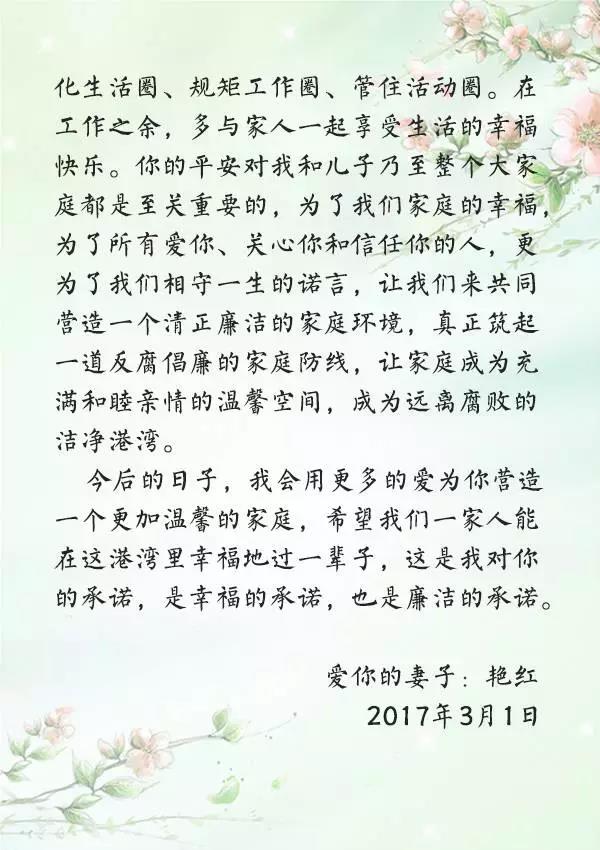 化生活圈、规矩工作圈、管住活动圈。在
工作之余，多与家人一起享受生活的幸福
快乐。你的平安对我和儿子乃至整个大家
庭都是至关重要的，为了我们家庭的幸福，
为了所有爱你、关心你和信任你的人，更
为了我们相守一生的诺言，让我们来共同
营造一个清正廉洁的家庭环境，真正筑起
一道反腐倡廉的家庭防线，让家庭成为充
满和睦亲情的温馨空间，成为远离腐败的
洁净港湾。
今后的日子，我会用更多的爱为你营造
一个更加温馨的家庭，希望我们一家人能
在这港湾里幸福地过一辈子，这是我对你
的承诺，是幸福的承诺，也是廉洁的承诺。
爱你的妻子：艳红
2017年3月1日